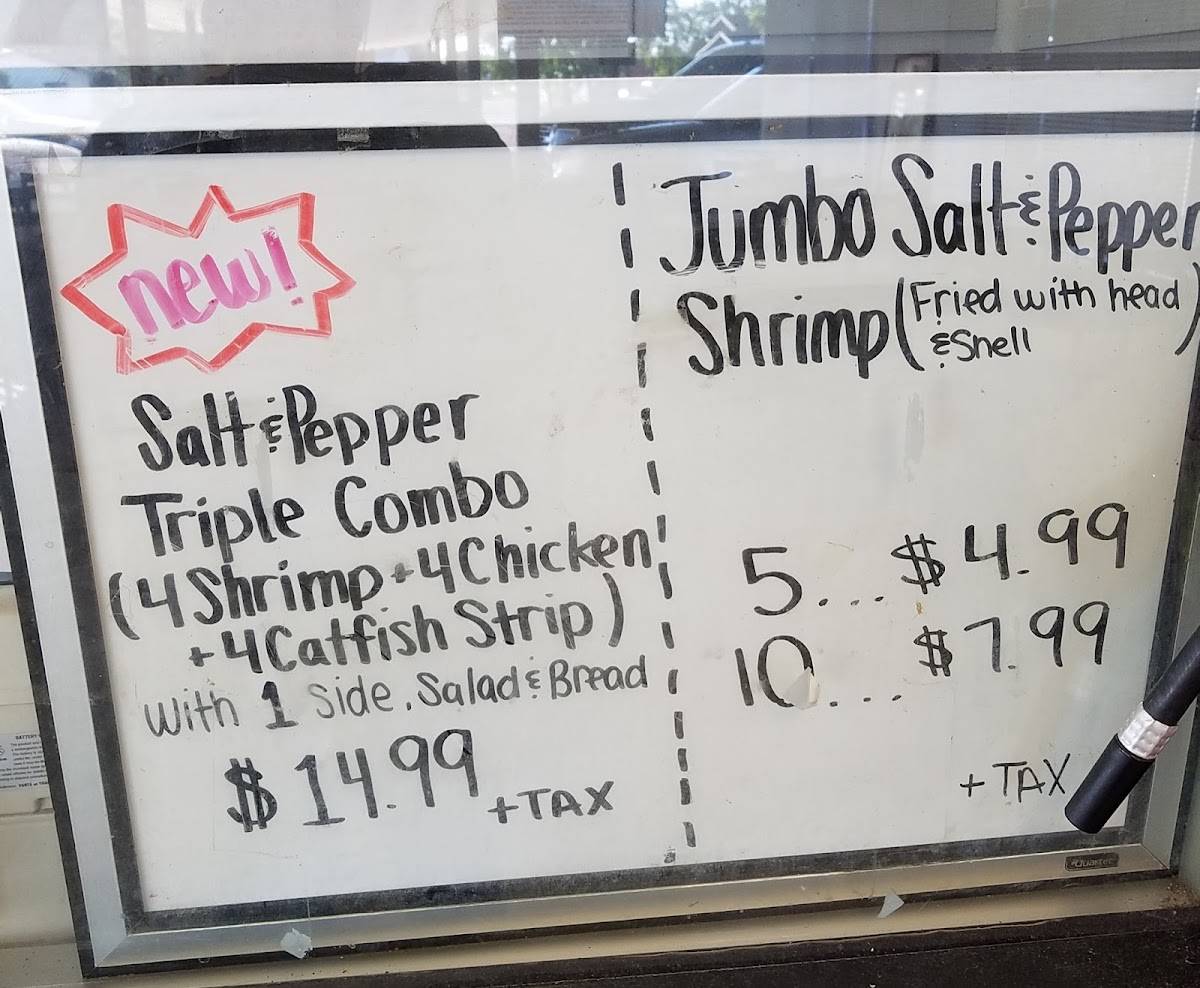 new!
Salt & Pepper
Triple Combo
(4 Shrimp + 4 Chicken
+ 4 Catfish Strip)
with 1 side, Salad & Bread
$14.99 +TAX
Jumbo Salt & Pepper
Shrimp (Fried with head
& Shell)
5...$4.99
10...$7.99
+ TAX
Quartet